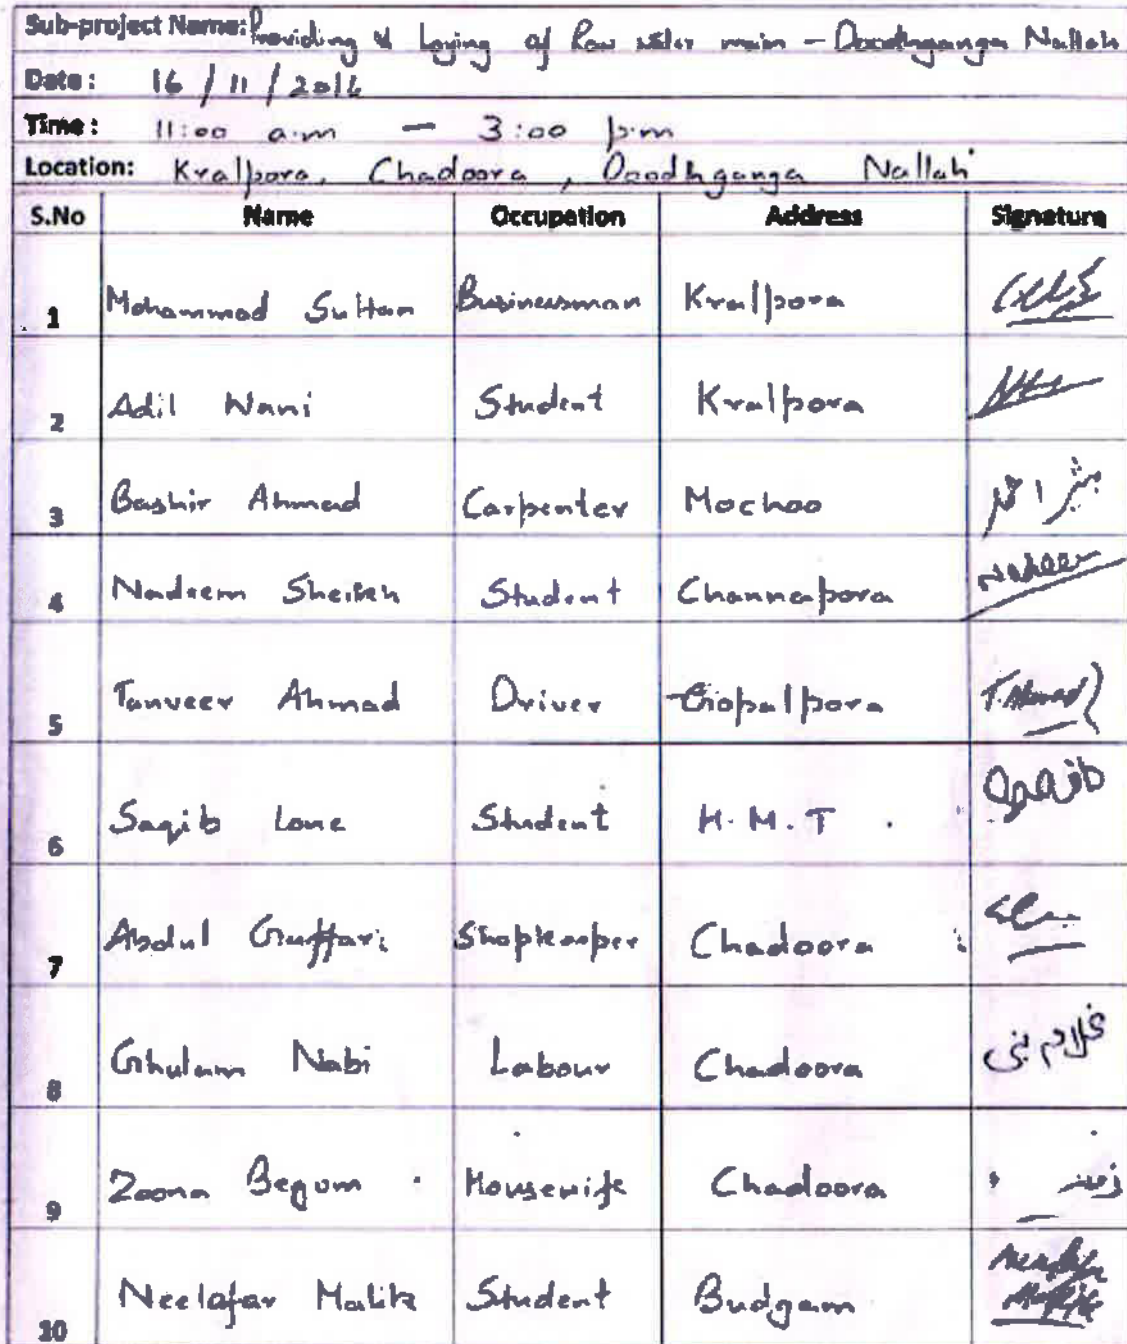 Sub-project Name: Providing & Laying of Raw water main - Doodhganga Nallah
Date: 16/11/2016
Time: 11:00 a.m — 3:00 p.m
Location: Kralpora, Chadoora, Doodhganga Nallah
S.No Name Occupation Address Signature
1 Mohammad Sultan Businessman Kralpora
2 Adil Wani Student Kralpora
3 Bashir Ahmad Carpenter Mochoo بشیر احمد
4 Nadeem Sheikh Student Channapora Nadeem
5 Tanveer Ahmad Driver Gopalpora T. Ahmad
6 Saqib Lone Student H.M.T.
7 Abdul Guffari Shopkeeper Chadoora
8 Ghulam Nabi Labour Chadoora غلام نبی
9 Zoona Begum Housewife Chadoora
10 Neelafar Malik Student Budgam